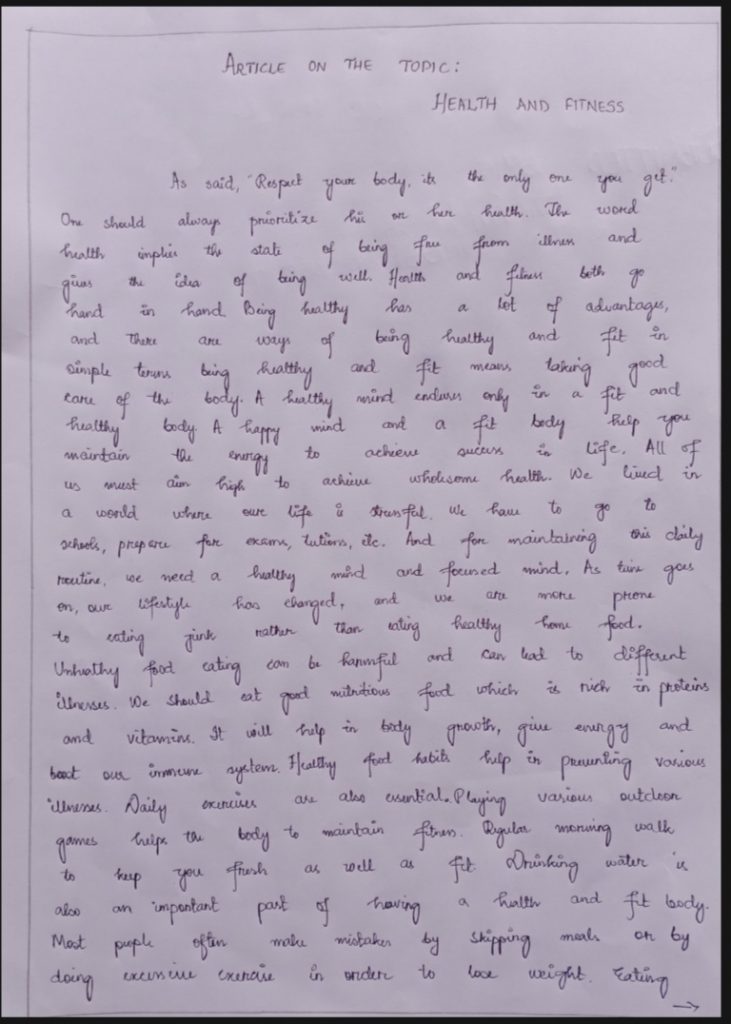 ARTICLE ON THE TOPIC:
HEALTH AND FITNESS
As said, "Respect your body, its the only one you get."
One should always prioritize his or her health. The word
health implies the state of being free from illness and
gives the idea of being well. Health and fitness both go
hand in hand. Being healthy has a lot of advantages,
and there are ways of being healthy and fit in
simple terms being healthy and fit means taking good
care of the body. A healthy mind endures only in a fit and
healthy body. A happy mind and a fit body help you
maintain the energy to achieve success in life. All of
us must aim high to achieve wholesome health. We lived in
a world where our life is stressful. We have to go to
schools, prepare for exams, tutions, etc. And for maintaining this daily
routine, we need a healthy mind and focused mind. As time goes
on, our lifestyle has changed, and we are more prone
to eating junk rather than eating healthy home food.
Unhealthy food eating can be harmful and can lead to different
illnesses. We should eat good nutritious food which is rich in proteins
and vitamins. It will help in body growth, give energy and
boost our immune system. Healthy food habits help in preventing various
illnesses. Daily exercises are also essential. Playing various outdoor
games helps the body to maintain fitness. Regular morning walk
to keep you fresh as well as fit. Drinking water is
also an important part of having a health and fit body.
Most people often make mistakes by skipping meals or by
doing excessive exercise in order to lose weight. Eating
→